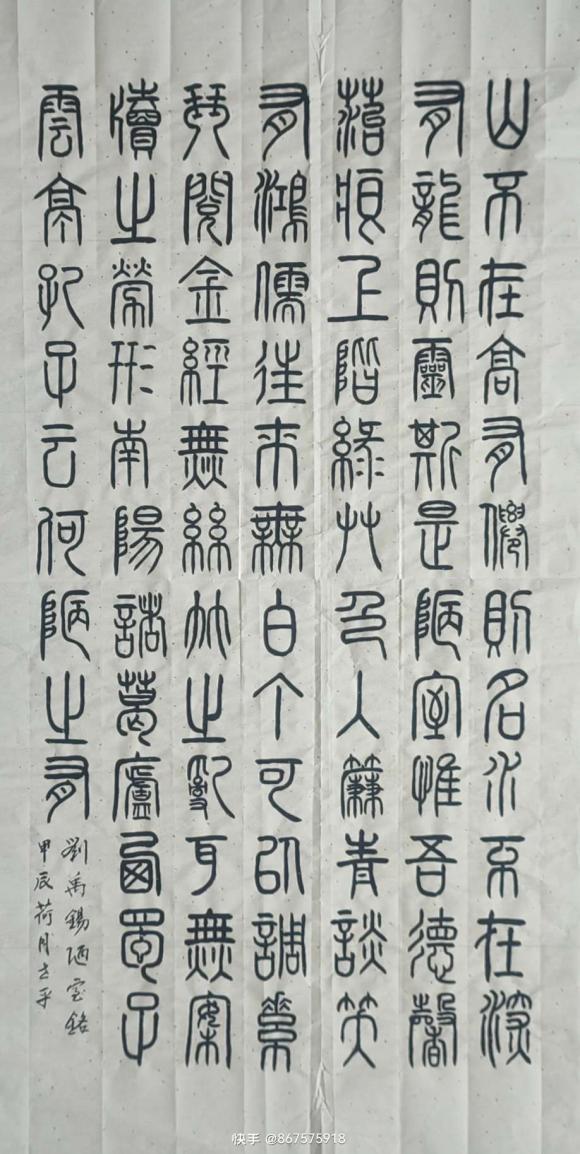 山不在高有僊則名水不在深
有龍則靈斯是陋室惟吾德馨
菭痕上階緑艸色入簾青談笑
有鴻儒往來無白丁可㠯調素
琴閱金經無絲竹之亂耳無案
牘之勞形南陽諸葛廬西蜀子
雲亭孔子云何陋之有
劉禹錫陋室銘
甲辰荷月
快手 @867575918